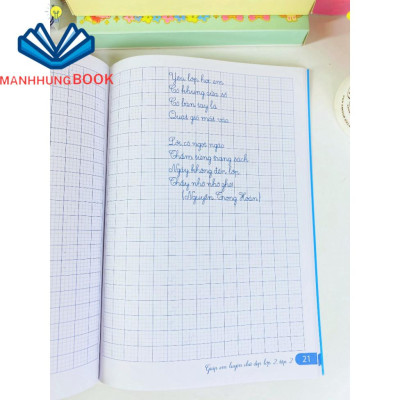 MANHHUNGBOOK
Yêu lớp học em
Có khung cửa sổ
Có bàn tay lá
Quạt gió mát vào
Lời cô ngọt ngào
Thấm từng trang sách
Ngày không đến lớp
Thấy nhớ nhớ ghê!
(Nguyễn Trọng Hoàn)
Giúp em luyện chữ đẹp lớp 2 tập 2
21